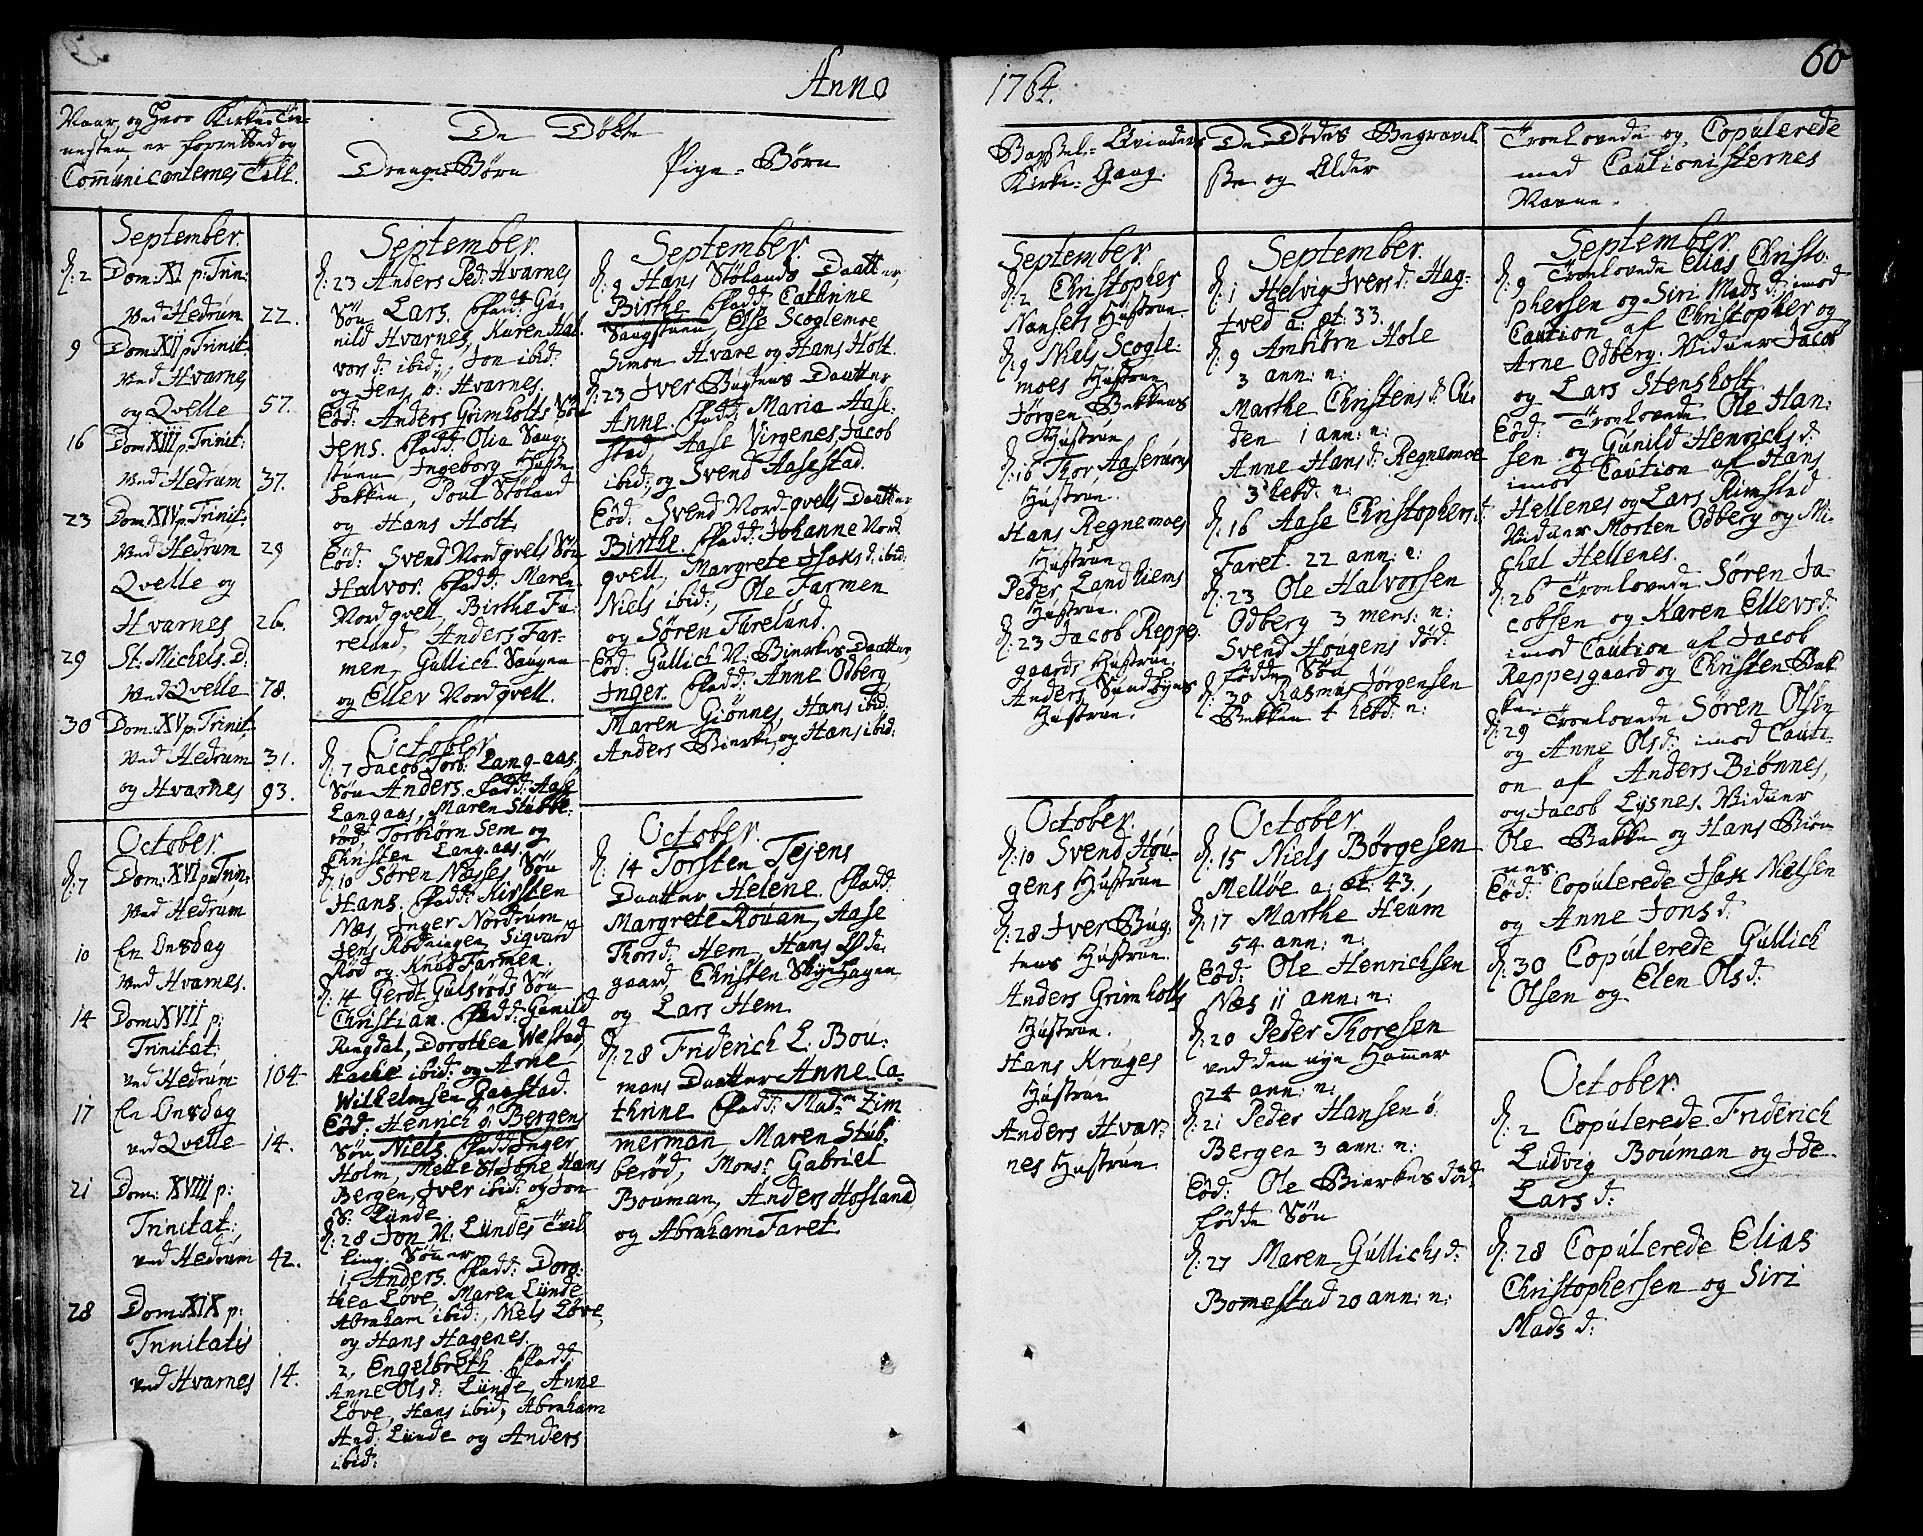 Anno
1764.
60
Naar, og hvor Kirke-Tie-
nesten er forretted og
Com̄unicanternes Tall.
De Døbte
Drenge-Børn
Pige-Børn
September.
d: 2 Dom: XI p: Trin:
ved Hedrum 22.
9 Dom: XII p: Trinit:
ved Hvarnes
og Qvelle 57.
16 Dom: XIII p: Trinit:
ved Hedrum 37.
23 Dom. XIV p: Trinit:
ved Hedrum 29
Qvelle og
Hvarnes 26.
29 St. Michels. D:
ved Qvelle 78.
30 Dom: XV p: Trinit:
ved Hedrum 31.
og Hvarnes 93.
October.
d: 7 Dom: XVI p: Trin:
ved Hedrum
10 En Onsdag
ved Hvarnes.
14 Dom: XVII p:
Trinitat:
ved Hedrum 104
17 En Onsdag
ved Qvelle 14.
21 Dom: XVIII p:
Trinitat:
ved Hedrum 42.
28 Dom: XIX p:
Trinitatis
ved Hvarnes 14.
September.
d: 23 Anders Ped: Hvarnes
Søn Lars. Fadd: Gu-
nild Hvarnes, Karen Hal
vors d: ibid:, Jon ibid:
og Jens, ø: Hvarnes.
Eod: Anders Grimholts Søn
Jens. Fadd: Olia Saug-
stuen, Ingeborg
bakken, Poul Støland
og Hans Holt.
Eod: Svend Nordqvels Søn
Halvor. Fadd: Maren
Nordqvell, Birthe Fu-
reland, Anders Far-
men, Gullich Haugen
og Ellev Nordqvell.
October.
d: 7 Jacob Torb: Lang-aas,
Søn Anders. Fadd: Aase
Langaas, Maren Stubbe-
rød, Torbiørn Sem og
Christen Lang-aas.
d: 10 Søren Næsses Søn
Hans. Fadd: Kirsten
Næs, Inger Nordrum,
Jens Rødningen, Sigvard
Rød og Knud Farmen.
d: 14 Gerdt Gulsrøds Søn
Christian. Fadd: Gunild
Ringdal, Dorothea Wefstad,
Aache ibid: og Arne
Wilhelmsen Gaastad.
Eod: Henrich ø: Bergens
Søn Niels. Fadd: Inger
Holm, Mette Hans
Bergen, Iver ibid: og Jon
S: Lunde.
d: 28 Jon N: Lundes Tvil
ling Sønner
1, Anders. Fadd: Doro-
thea Løve, Maren Lunde
Abraham ibid:, Niels Løve,
og Hans Hagenes.
2, Engelbreth. Fadd:
Anne Ols d: Lunde, Anne
Løve, Hans ibid:, Abraham
And: Lunde og Anders
ibid:
September.
d: 9 Hans Stølands Daatter,
Birthe Fadd: Cathrine
Saugstuen, Else Scoglemoe
Simon Hvare og Hans Holt.
d: 23 Iver Bugtens Daatter
Anne. Fadd: Maria Aase-
stad, Aase Virgenes, Jacob
ibid: og Svend Aasestad.
Eod: Svend Nord-qvells Daatter
Birthe. Fadd: Johanne Nord
qvell, Margrete Isaks d: ibid:
Niels ibid:, Ole Farmen
og Søren Furelund.
Eod: Gullich N: Bierkes Daatter,
Inger. Fadd: Anne Odberg
Maren Giønnes, Hans ibid:
Anders Bierke, og Hans ibid:
October.
d: 14 Torsten Tejens
Daatter Helene. Fadd:
Margrete Rouan, Aase
Thors d: Hem, Hans Øde-
gaard, Christen
og Lars Hem.
d: 28 Friderich L: Bou-
mans Daatter Anne Ca-
thrine Fadd: Mad:m Zim
merman Maren Stub-
berød, Mons:r Gabriel
Bouman, Anders Hofland
og Abraham Faret.
Barsel-Qvinders
Kirke-Gang.
September.
d: 2 Christopher
Nansets Hustrue.
d: 9 Niels Scogle-
moes Hustrue
Jørgen Bakkens
Hustrue
d: 16 Thor Aaserums
Hustrue.
Hans Regnemoes
Hustrue
Peder Landhiems
Hustrue.
d: 23 Jacob Reppe-
gaards Hustrue,
Anders Sundbyes
Hustrue.
October.
d: 10 Svend Hou-
gens Hustrue
d: 28 Iver Bug-
tens Hustrue
Anders Grimholts
Hustrue.
Hans Kruges
Hustrue
Anders Hvar-
nes Hustrue
De Dødes Begravel
se og Alder
September.
d: 1 Helvig Ivers d: Hag-
tved a: æt: 33.
d: 9 Ambiørn Hole
3 ann: n:
Marthe Christens d: Au
den 1 ann: n:
Anne Hans d: Regnemoe
3 hebd: n:
d: 16 Aase Christophers d:
Faret. 22 ann: n:
d: 23 Ole Halvorsen
Odberg 3 mens: n:
Svend Hougens død-
fødde Søn
d: 30 Rasmus Jørgensen
Bakken 4 hebd: n:
October.
d: 15 Niels Børgesen
Melløe a: æt: 43,
d: 17 Marthe Heum
54 ann: n:
Eod: Ole Henrichsen
Næs 11 ann: n:
d: 20 Peder Thoresen
ved den nye Hammer
24 ann: n:
d: 21 Peder Hansen ø:
Bergen 3 ann: n:
Eod: Ole Bierkes død-
fødde Søn
d: 27 Maren Gullichs d:
Bomestad 20 ann: n:
Troelovede og Copulerede
med Cautionisternes
Navne.
September.
d: 9 Troelovede Elias Christo-
phersen og Siri Mads d: imod
Caution af Christopher og
Arne Odberg. Viduer Jacob
og Lars Stensholt.
Eod: Troelovede Ole Han-
sen og Gunild Henrichs d:
imod Caution af Hans
Hellenes og Lars Rimstad
Viduer Morten Odberg og Mi-
chel Hellenes.
d: 26 Troelovede Søren Ja-
cobsen og Karen Ellevs d:
imod Caution af Jacob
Reppesgaard og Christen Bak
ken
d: 29 Troelovede Søren Olsen
og Anne Ols d: imod Cauti-
on af Anders Biønnes,
og Jacob Lysnes. Viduer
Ole Bakke og Hans Biøn
nes.
Eod: Copulerede Isak Nielsen
og Anne Jons d:
d: 30 Copulerede Gullich
Olsen og Elen Ols d:
October.
d: 2 Copulerede Friderich
Ludvig Bouman og Ide
Lars d:
d: 28 Copulerede Elias
Christophersen og Siri
Mads d: